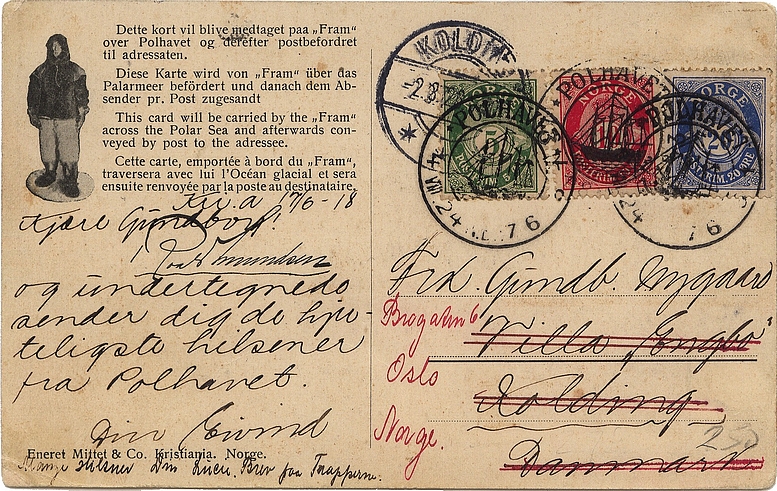 Dette kort vil blive medtaget paa „Fram“
over Polhavet og derefter postbefordret
til adressaten.
Diese Karte wird von „Fram“ über das
Palarmeer befördert und danach dem Ab-
sender pr. Post zugesandt
This card will be carried by the „Fram“
across the Polar Sea and afterwards con-
veyed by post to the adressee.
Cette carte, emportée à bord du „Fram“,
traversera avec lui l'Océan glacial et sera
ensuite renvoyée par la poste au destinataire.
Kr.a 17/6-18
Kjære Gundborg!
Roald Amundsen
og undertegnede
sender dig de hjer-
teligste hilsener
fra Polhavet.
Din Eivind
Eneret Mittet & Co. Kristiania. Norge.
Mange hilsner Din Brev fra
KOLDING
NORGE
5
NORGE
NORGE
20
POLHAVET
POLHAVET
POLHAVET
24 76
24 76
Frk. Gundb. Nygaard
Villa „Engbo“
Brogaten 6
Kolding
Oslo
Danmark
Norge.